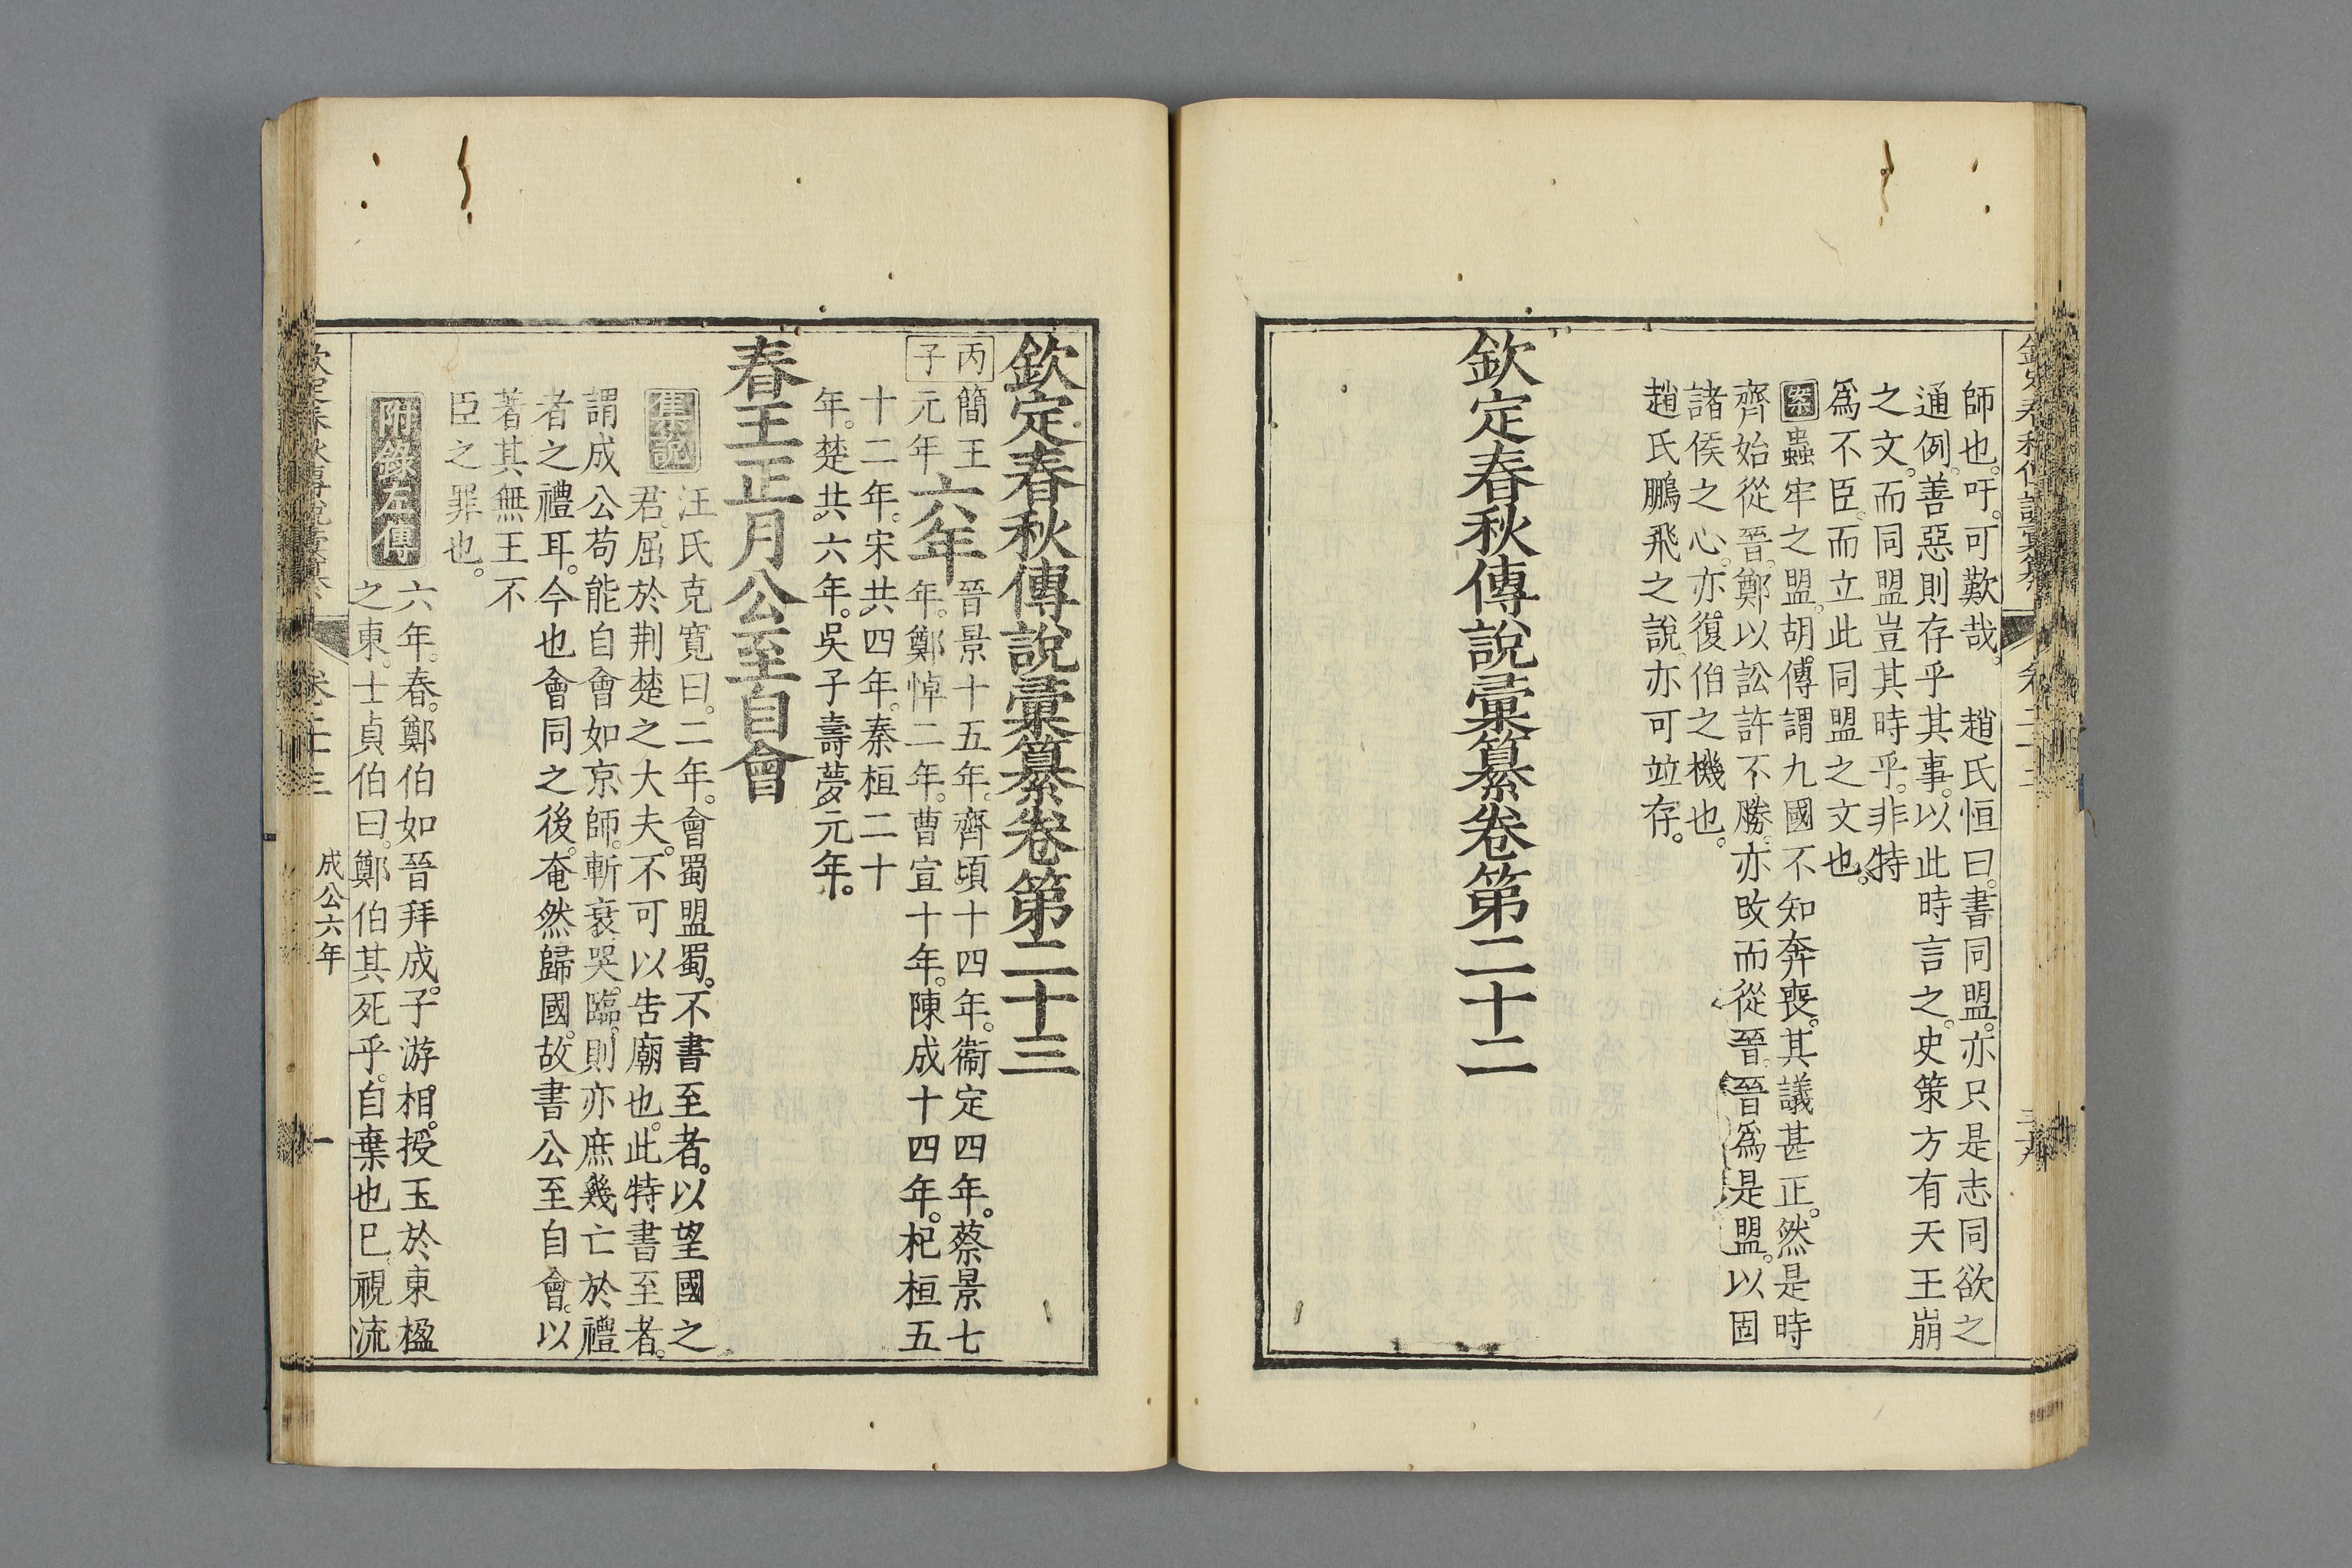 師也。吁。可歎哉。　趙氏恒曰。書同盟。亦只是志同欲之
通例。善惡則存乎其事。以此時言之。史策方有天王崩
之文。而同盟豈其時乎。非特
爲不臣。而立此同盟之文也。
案蟲牢之盟。胡傳謂九國不知奔喪。其議甚正。然是時
齊始從晉。鄭以訟許不勝。亦改而從晉。晉爲是盟。以固
諸侯之心。亦復伯之機也。
趙氏鵬飛之說。亦可竝存。
欽定春秋傳說彙纂卷第二十二
欽定春秋傳說彙纂卷第二十三
丙子
簡王元年
六年
晉景十五年。齊頃十四年。衞定四年。蔡景七
年。鄭悼二年。曹宣十年。陳成十四年。杞桓五
十二年。宋共四年。秦桓二十
年。楚共六年。吳子壽夢元年。
春王正月公至自會
集說
汪氏克寬曰。二年。會蜀盟蜀。不書至者。以望國之
君。屈於荆楚之大夫。不可以告廟也。此特書至者。
謂成公苟能自會如京師。斬衰哭。臨。則亦庶幾亡於禮
者之禮耳。今也會同之後。奄然歸國。故書公至自會。以
著其無王不
臣之罪也。
附錄左傳
六年。春。鄭伯如晉拜成。子游。相。授玉於東楹
之東。士貞伯曰。鄭伯其死乎。自棄也已。視流
欽定春秋傳說彙纂
卷二十三
成公六年
一